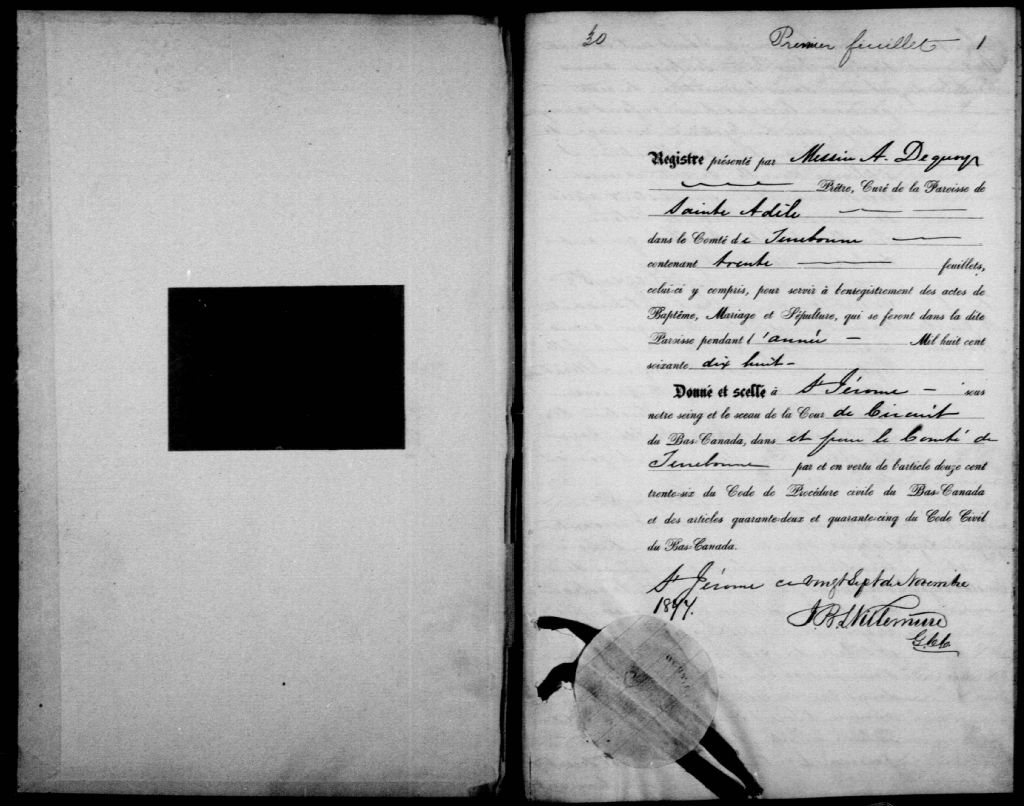 30 Premier feuillet 1
Registre présenté par Messire A. Dequoy
Prêtre, Curé de la Paroisse de
Sainte Adèle
dans le Comté de Terrebonne
contenant trente feuillets,
celui-ci y compris, pour servir à l'enregistrement des actes de
Baptême, Mariage et Sépulture, qui se feront dans la dite
Paroisse pendant l'année Mil huit cent
soixante dix huit
Donné et scellé à St Jérome sous
notre seing et le sceau de la Cour de Circuit
du Bas-Canada, dans et pour le Comté de
Terrebonne par et en vertu de l'article douze cent
trente-six du Code de Procédure civile du Bas-Canada
et des articles quarante-deux et quarante-cinq du Code Civil
du Bas-Canada.
St Jérome ce vingt Sept de Novembre
1877.
J. B. L. Villemure
G.C.C.